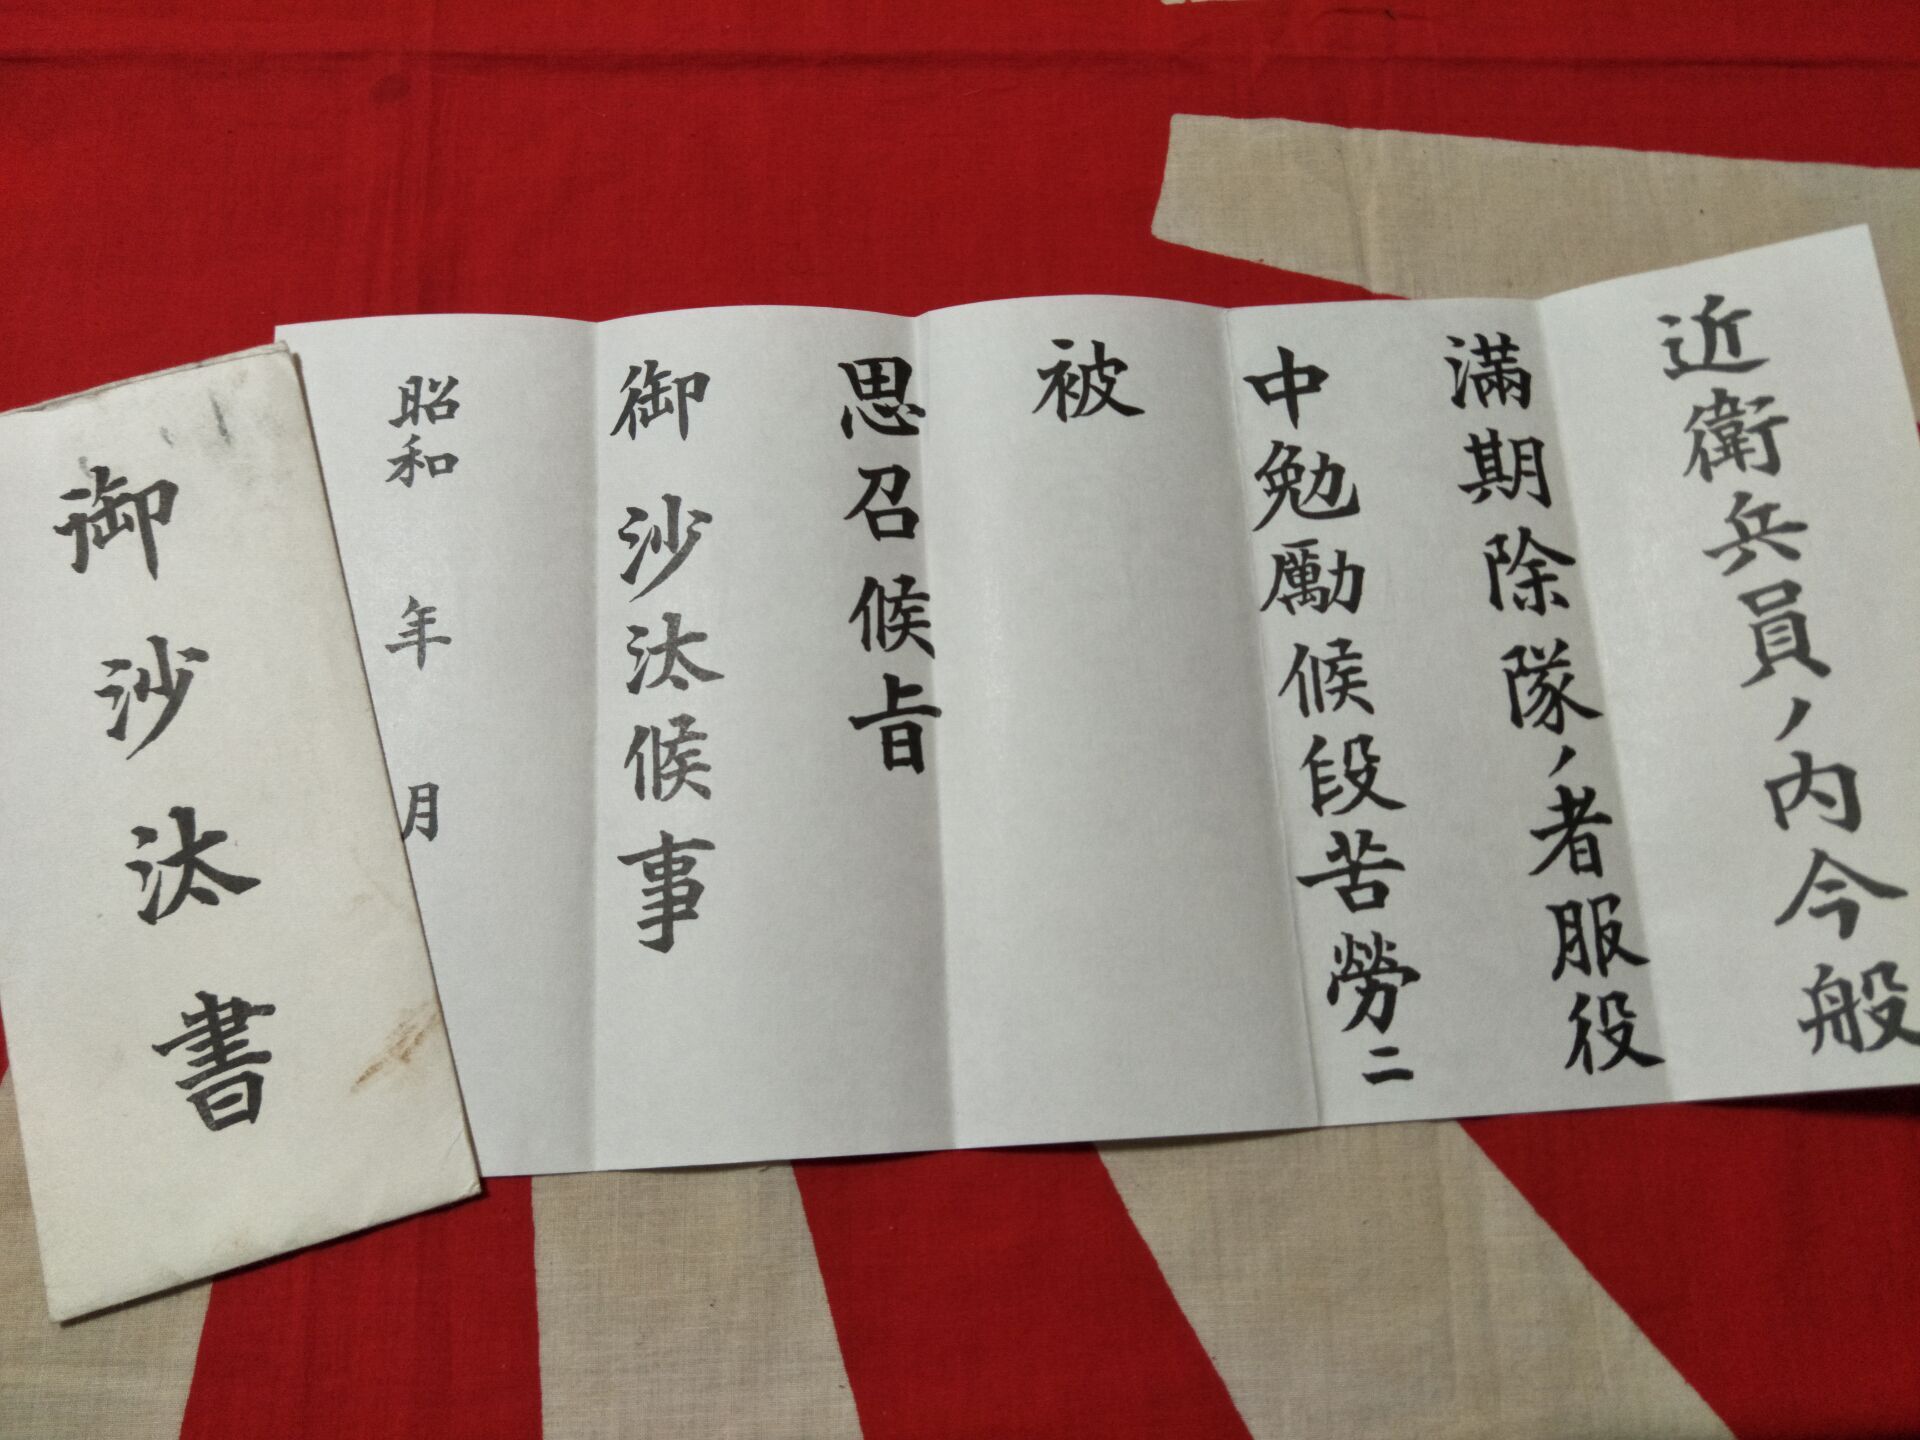 近衛兵員ノ内今般
滿期除隊ノ者服役
中勉勵候段苦勞ニ
被
思召候旨
御沙汰候事
昭和 年 月
御沙汰書